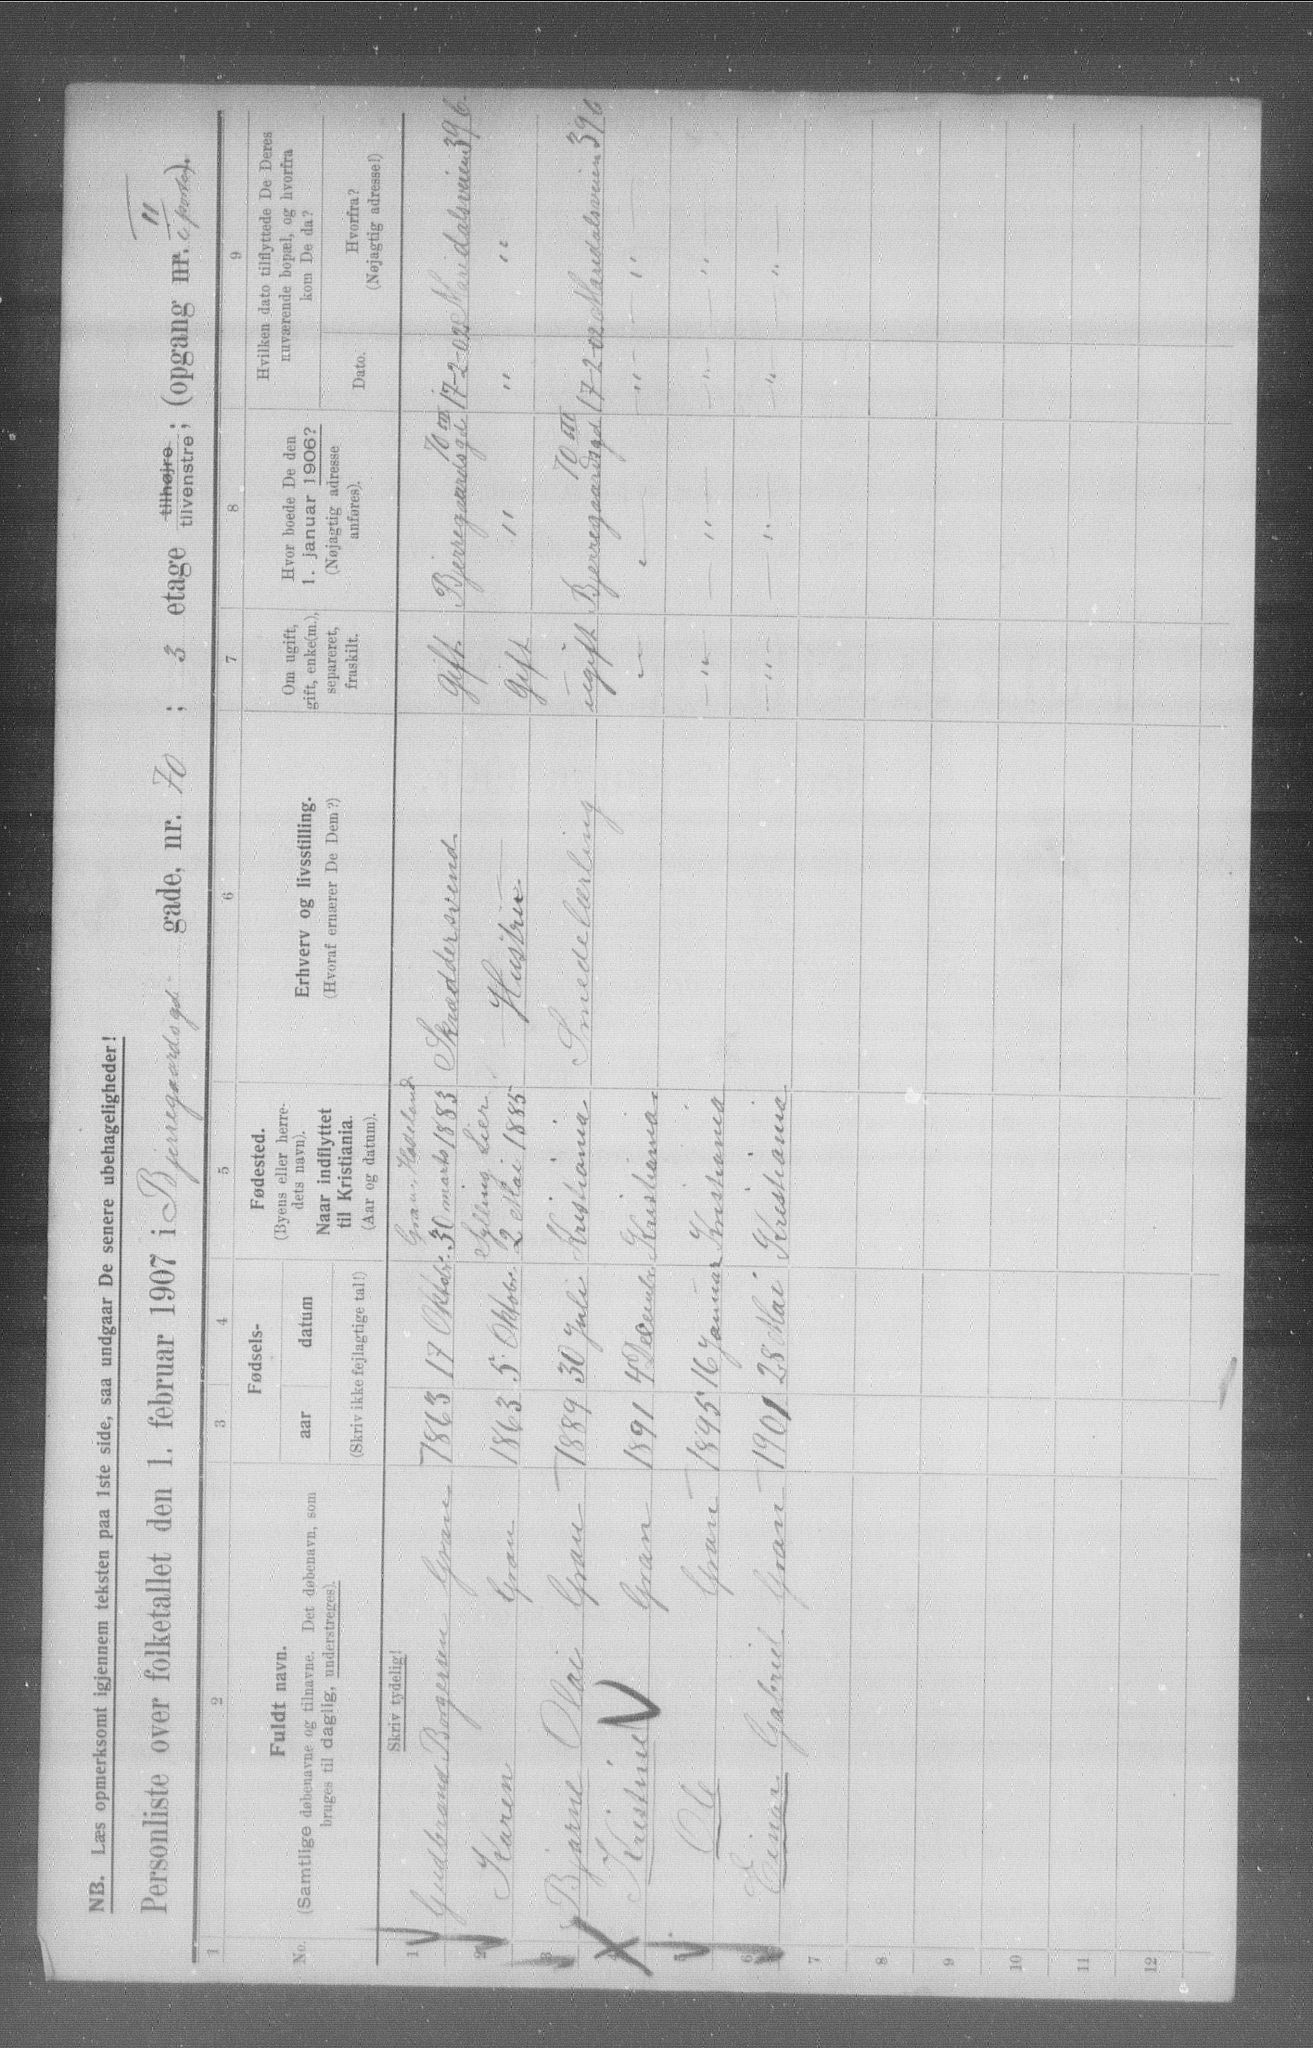 NB. Læs opmerksomt igjennem teksten paa 1ste side, saa undgaar De senere ubehageligheder!
Personliste over folketallet den 1. februar 1907 i Bjerregaardsgd. gade, nr. 70 ; 3 etage tilhøjre tilvenstre; (opgang nr. II).
1 2 3 4 5 6 7 8 9
No.
Fuldt navn.
(Samtlige døbenavne og tilnavne. Det døbenavn, som
bruges til daglig, understreges).
Skriv tydelig!
Fødsels-
aar datum
(Skriv ikke fejlagtige tal!)
Fødested.
(Byens eller herre-
dets navn).
Naar indflyttet
til Kristiania.
(Aar og datum).
Erhverv og livsstilling.
(Hvoraf ernærer De Dem?)
Om ugift,
gift, enke(m.),
separeret,
fraskilt.
Hvor boede De den
1. januar 1906?
(Nøjagtig adresse
anføres).
Hvilken dato tilflyttede De Deres
nuværende bopæl, og hvorfra
kom De da?
Dato.
Hvorfra?
(Nøjagtig adresse!)
Gran, Hadeland 70 III
1 Gudbrand Borgersen Gran 1863 17 Oktobr. 30 marts 1883 Skræddersvend Gift. Bjerregaardsgd 17-2-02 Maridalsveien 39 b.
Sylling Lier
2 Karen Gran 1863 5 Oktobr. 2 Mai 1885 Hustru Gift " " "
70 III
3 Bjarne Olai Gran 1889 30 Juli Kristiania Smedelærling ugift Bjerregaardsgd 17-2-02 Maridalsveien 39 b
4 Kristine Gran 1891 4 Decembr. Kristiania. " " " "
5 Ole Gran 1895 16 Januar Kristiania " " " "
6 Einar Gabriel Gran 1901 28 Mai Kristiania " " " "
7
8
9
10
11
12